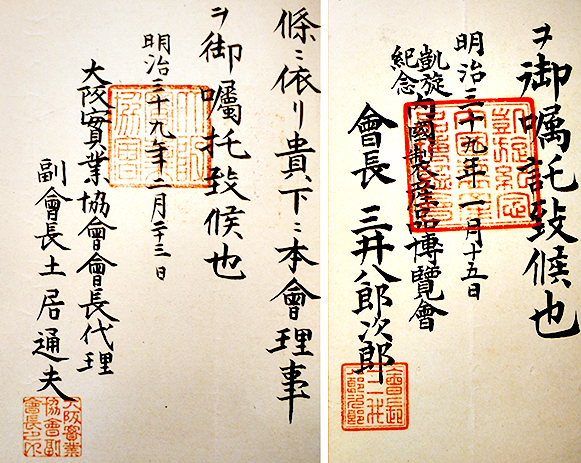 條ニ依リ貴下ニ本會理事
ヲ御囑托致候也
明治三十九年二月廿三日
大阪實業協會會長代理
副會長土居通夫
大阪實業
協會副
會長之印
ヲ御囑託致候也
明治三十九年一月十五日
凱旋紀念内國製産品博覽會
會長 三井八郎次郎